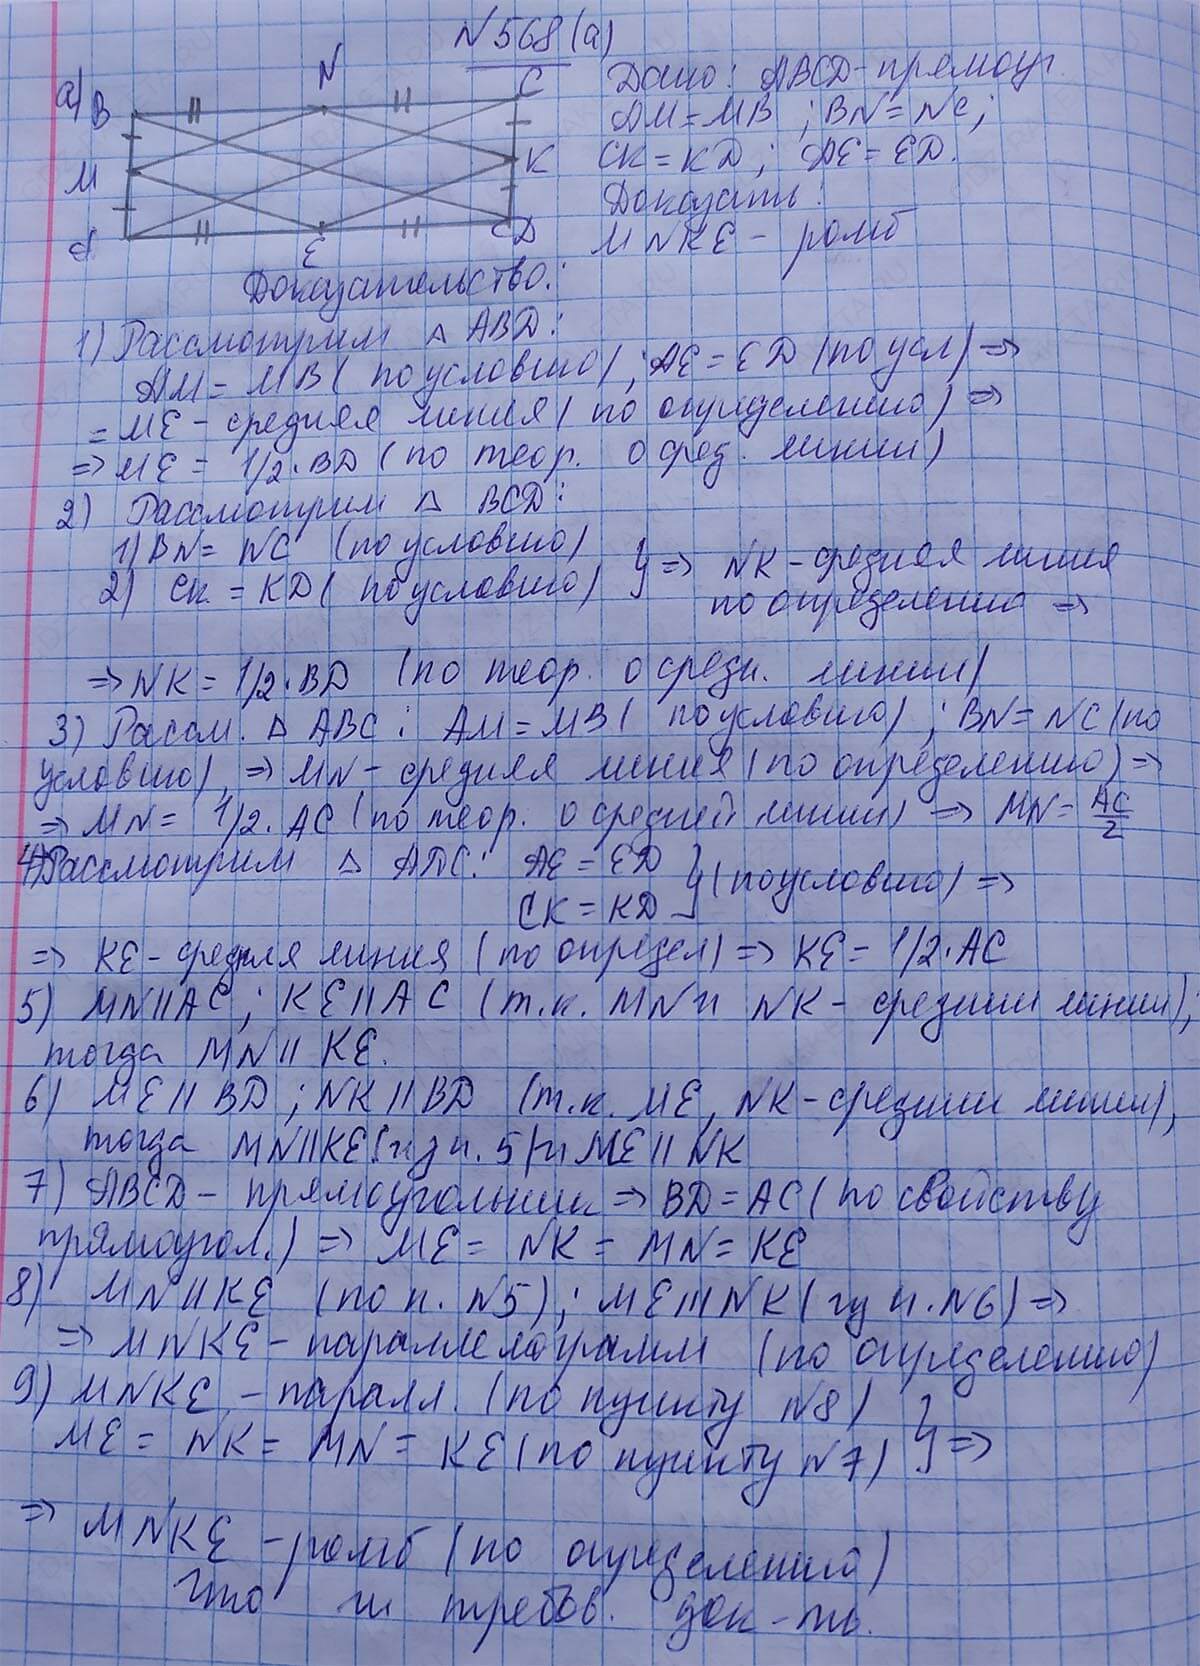 N568(а)
а)
B N C
M K
A E D
Дано: ABCD-прямоуг.
AM=MB; BN=NC;
CK=KD; AE=ED.
Доказать:
MNKE - ромб
Доказательство:
1) Рассмотрим △ ABD:
AM=MB (по условию); AE=ED (по усл) =>
= ME - средняя линия (по определению) =>
=> ME = 1/2·BD (по теор. о сред. линии)
2) Рассмотрим △ BCD:
1) BN=NC (по условию)
2) CK=KD (по условию) } => NK - средняя линия
по определению =>
=> NK = 1/2·BD (по теор. о средн. линии)
3) Рассм. △ ABC: AM=MB (по условию); BN=NC (по
условию), => MN - средняя линия (по определению) =>
=> MN = 1/2·AC (по теор. о средней линии) => MN = AC/2
4) Рассмотрим △ ADC: AE=ED
CK=KD } (по условию) =>
=> KE - средняя линия (по определ) => KE = 1/2·AC
5) MN||AC; KE||AC (т.к. MN и NK - средние линии);
тогда MN||KE.
6) ME||BD; NK||BD (т.к. ME, NK - средние линии),
тогда MN||KE (из п. 5) и ME||NK
7) ABCD - прямоугольник => BD=AC (по свойству
прямоугол.) => ME=NK=MN=KE
8) MN||KE (по п. N5); ME|||NK (из п. N6) =>
=> MNKE - параллелограмм (по определению)
9) MNKE - паралл. (по пункту N8)
ME=NK=MN=KE (по пункту N7) } =>
=> MNKE - ромб (по определению)
Что и требов. док-ть.